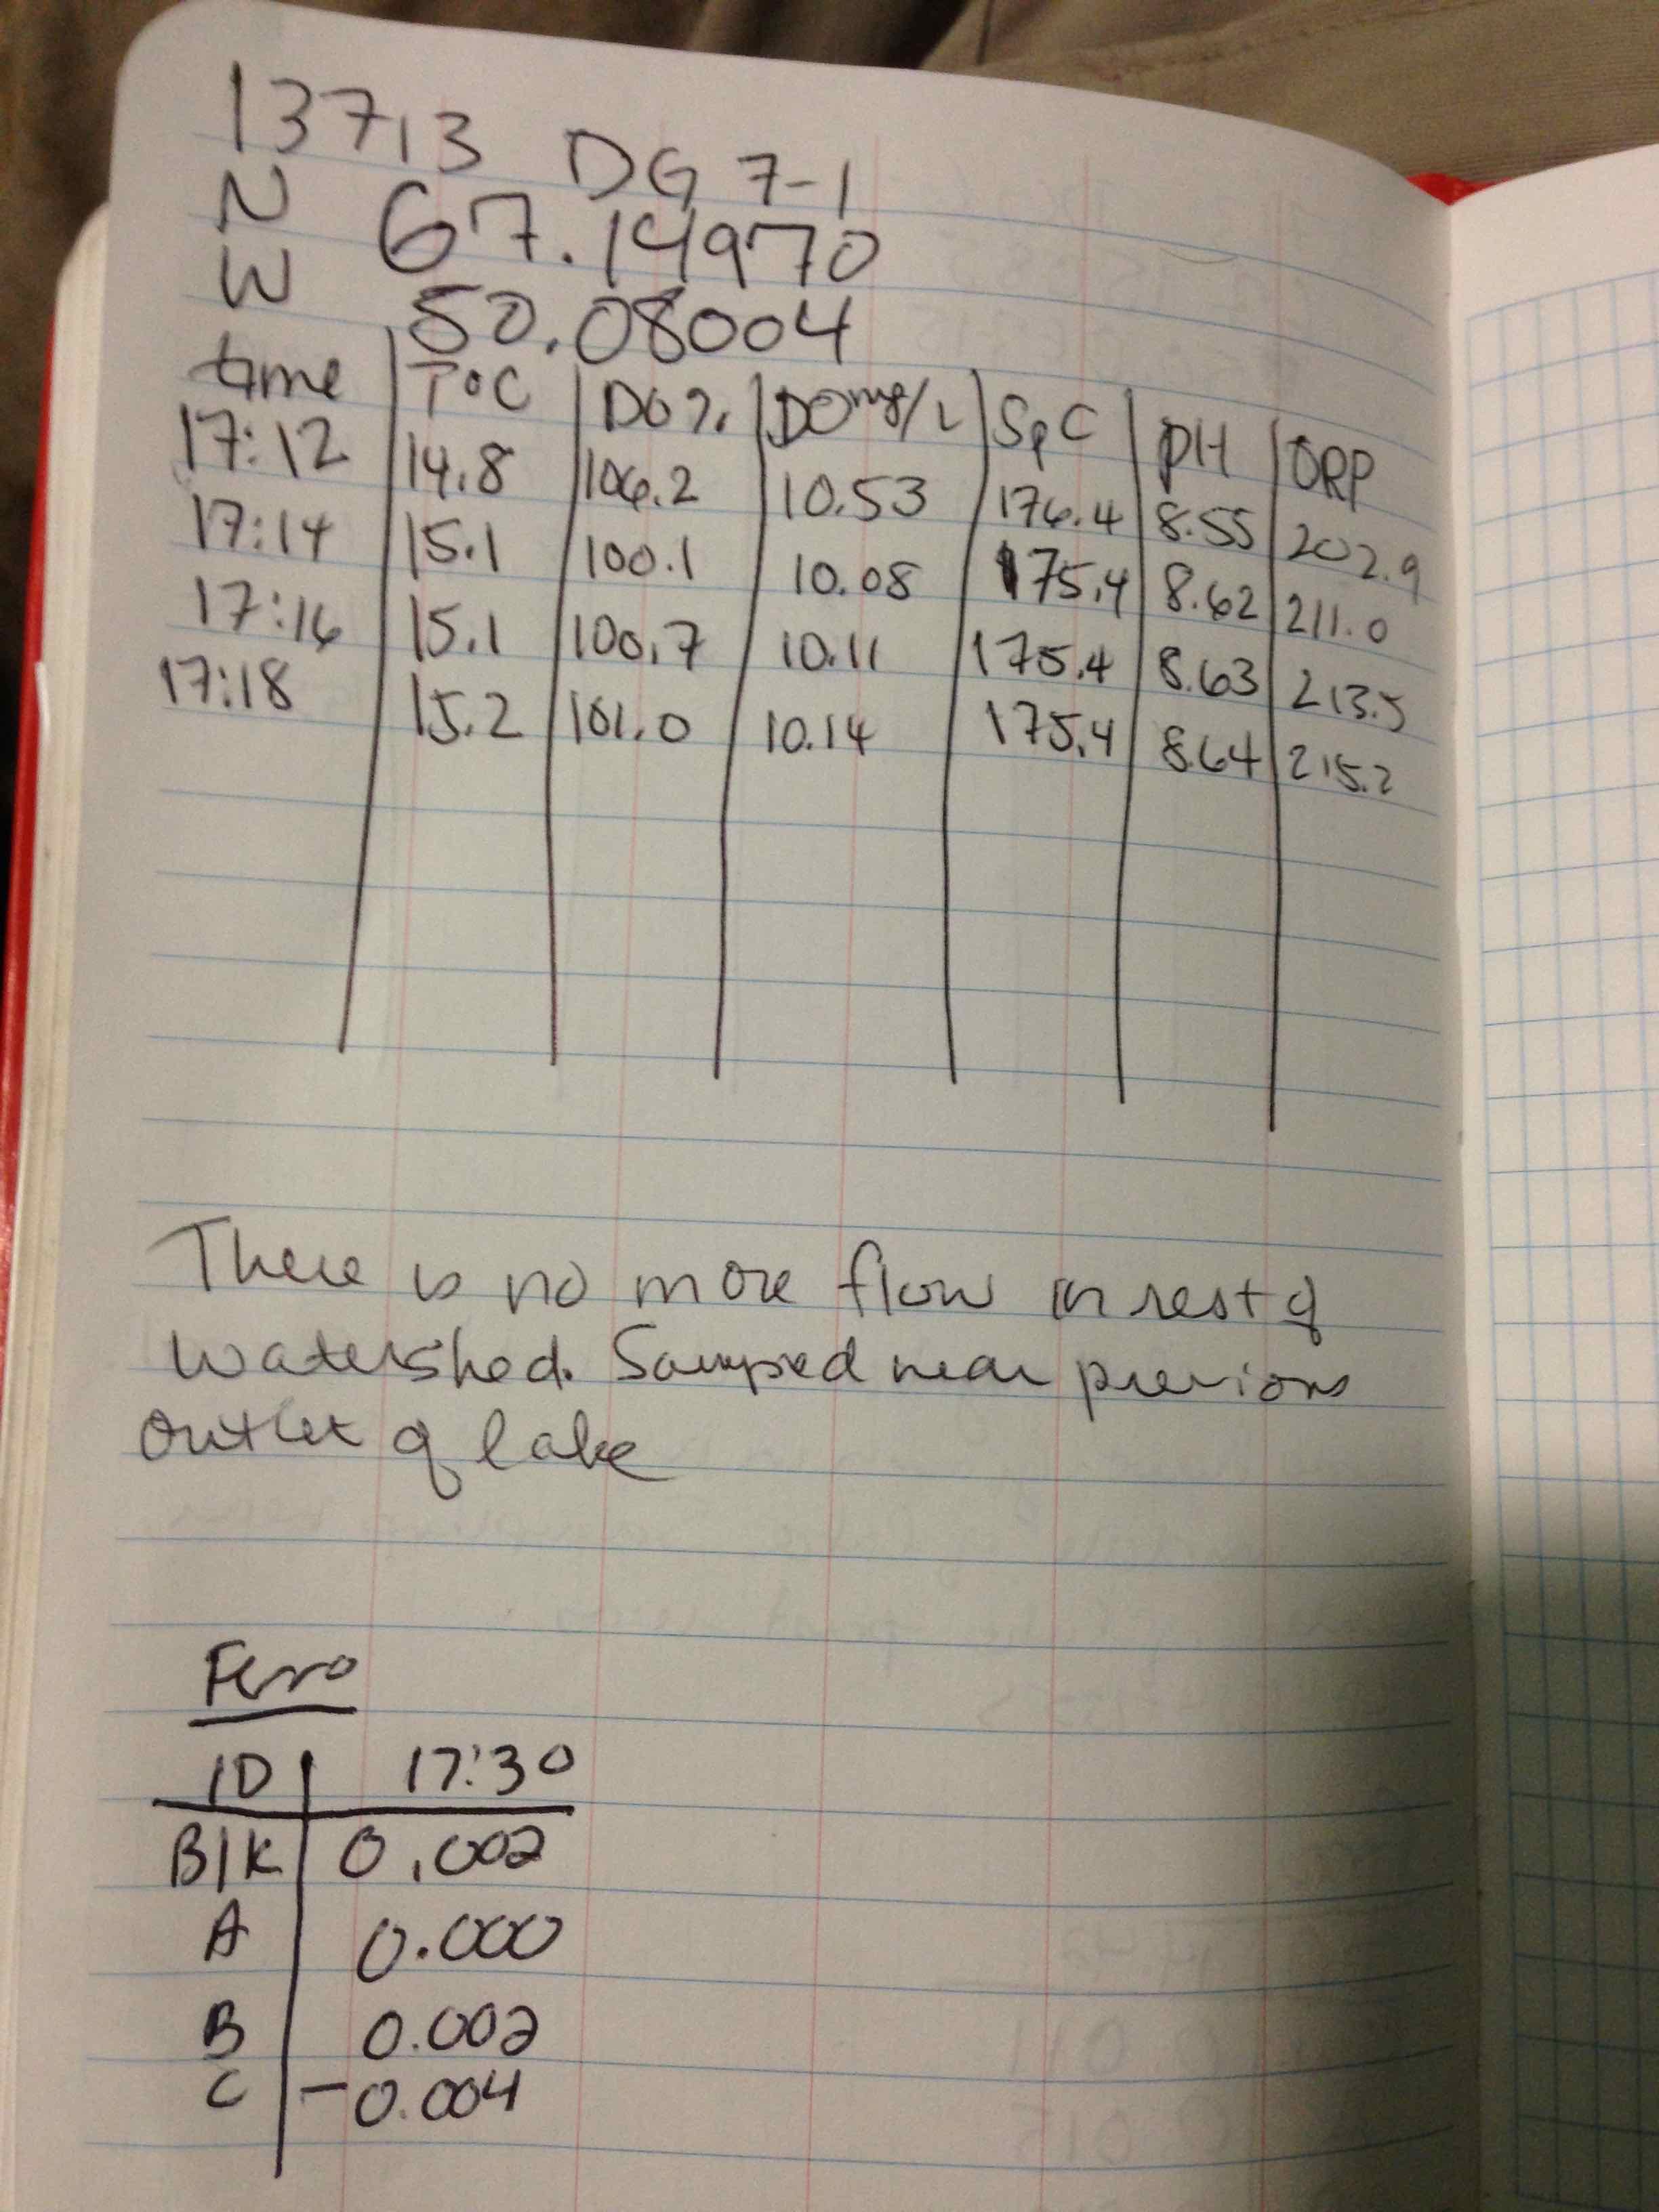 13713 DG 7-1
N 67.14970
W 50.08004
time T°C DO% DO mg/L SpC pH ORP
17:12 14.8 106.2 10.53 176.4 8.55 202.9
17:14 15.1 100.1 10.08 175.4 8.62 211.0
17:16 15.1 100.7 10.11 175.4 8.63 213.5
17:18 15.2 101.0 10.14 175.4 8.64 215.2
There is no more flow in rest of
watershed. Sampled near previous
outlet of lake
Ferro
ID 17:30
Blk 0.002
A 0.000
B 0.002
C -0.004